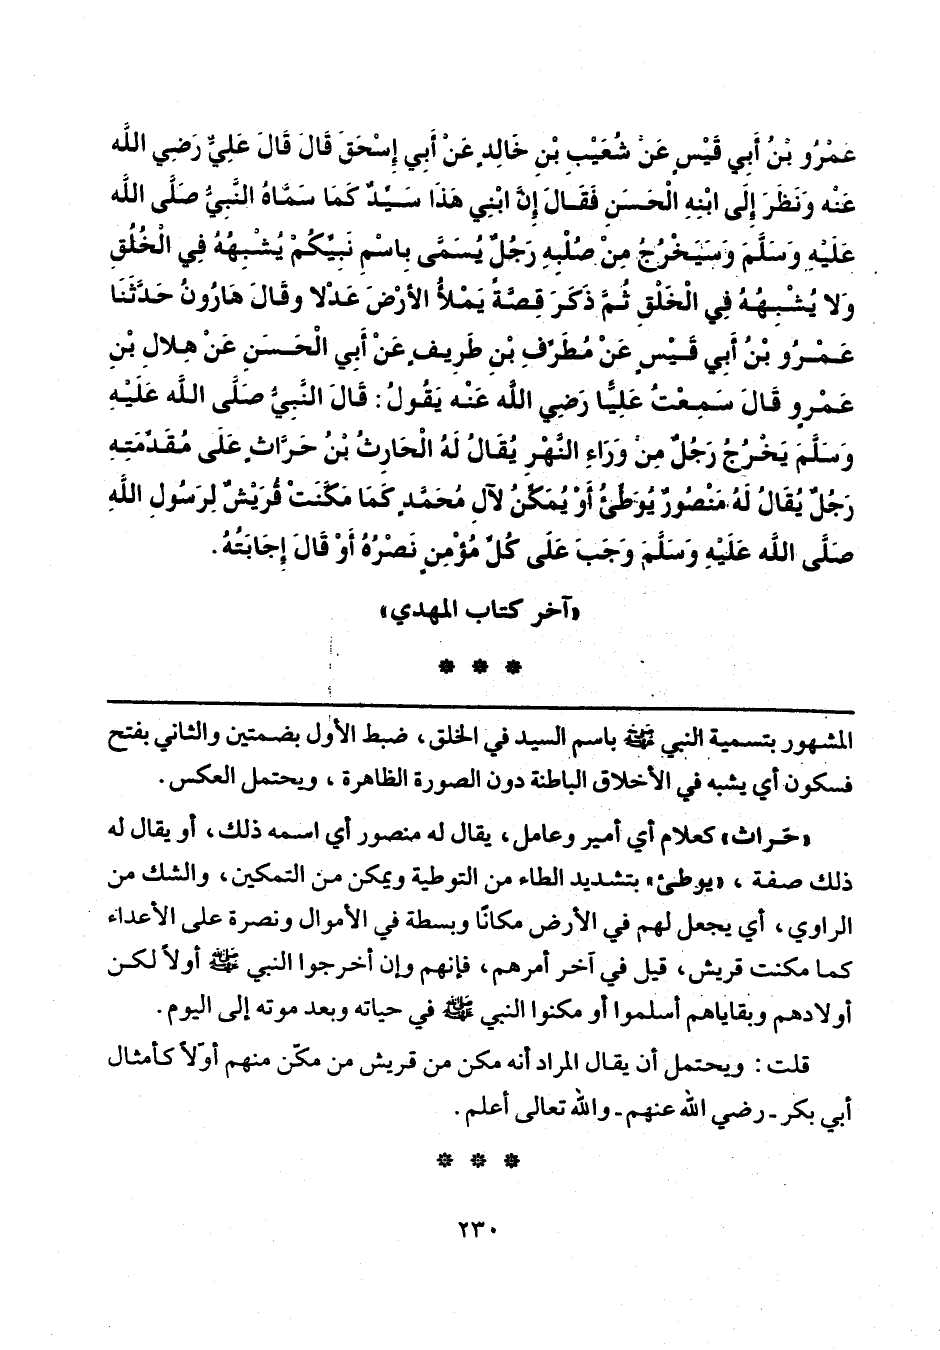 عَمْرُو بْنُ أَبي قَيْسٍ عَنْ شُعَيْبِ بْنِ خَالِدٍ عَنْ أَبي إِسْحَقَ قَالَ قَالَ عَلِيٌّ رَضِي اللَّه
عَنْه وَنَظَرَ إِلَى ابْنِهِ الْحَسَنِ فَقَالَ إِنَّ ابْنِي هَذَا سَيِّدٌ كَمَا سَمَّاهُ النَّبِيُّ صَلَّى اللَّه
عَلَيْهِ وَسَلَّمَ وَسَيَخْرُجُ مِنْ صُلْبِهِ رَجُلٌ يُسَمَّى بِاسْمِ نَبِيِّكُمْ يُشْبِهُهُ فِي الْخُلُقِ
وَلا يُشْبِهُهُ فِي الْخَلْقِ ثُمَّ ذَكَرَ قِصَّةً يَمْلأُ الأَرْضَ عَدْلا وقَالَ هَارُونُ حَدَّثَنَا
عَمْرُو بْنُ أَبي قَيْسٍ عَنْ مُطَرِّفِ بْنِ طَرِيفٍ عَنْ أَبي الْحَسَنِ عَنْ هِلالِ بْنِ
عَمْرٍو قَالَ سَمِعْتُ عَلِيًّا رَضِي اللَّه عَنْه يَقُولُ: قَالَ النَّبِيُّ صَلَّى اللَّه عَلَيْهِ
وَسَلَّمَ يَخْرُجُ رَجُلٌ مِنْ وَرَاءِ النَّهْرِ يُقَالُ لَهُ الْحَارِثُ بْنُ حَرَّاثٍ عَلَى مُقَدِّمَتِهِ
رَجُلٌ يُقَالُ لَهُ مَنْصُورٌ يُوَطِّئُ أَوْ يُمَكِّنُ لآلِ مُحَمَّدٍ كَمَا مَكَّنَتْ قُرَيْشٌ لِرَسُولِ اللَّهِ
صَلَّى اللَّه عَلَيْهِ وَسَلَّمَ وَجَبَ عَلَى كُلِّ مُؤْمِنٍ نَصْرُهُ أَوْ قَالَ إِجَابَتُهُ.
«آخر كتاب المهدي»
* * *
المشهور بتسمية النبي ﷺ باسم السيد في الخلق، ضبط الأول بضمتين والثاني بفتح
فسكون أي يشبه في الأخلاق الباطنة دون الصورة الظاهرة، ويحتمل العكس.
«حَراث» كعلام أي أمير وعامل، يقال له منصور أي اسمه ذلك، أو يقال له
ذلك صفة، «يوطئ» بتشديد الطاء من التوطية ويمكن من التمكين، والشك من
الراوي، أي يجعل لهم في الأرض مكانًا وبسطة في الأموال ونصرة على الأعداء
كما مكنت قريش، قيل في آخر أمرهم، فإنهم وإن أخرجوا النبي ﷺ أولاً لكن
أولادهم وبقاياهم أسلموا أو مكنوا النبي ﷺ في حياته وبعد موته إلى اليوم.
قلت: ويحتمل أن يقال المراد أنه مكن من قريش من مكّن منهم أوّلاً كأمثال
أبي بكر ـ رضي الله عنهم ـ والله تعالى أعلم.
* * *
٢٣٠